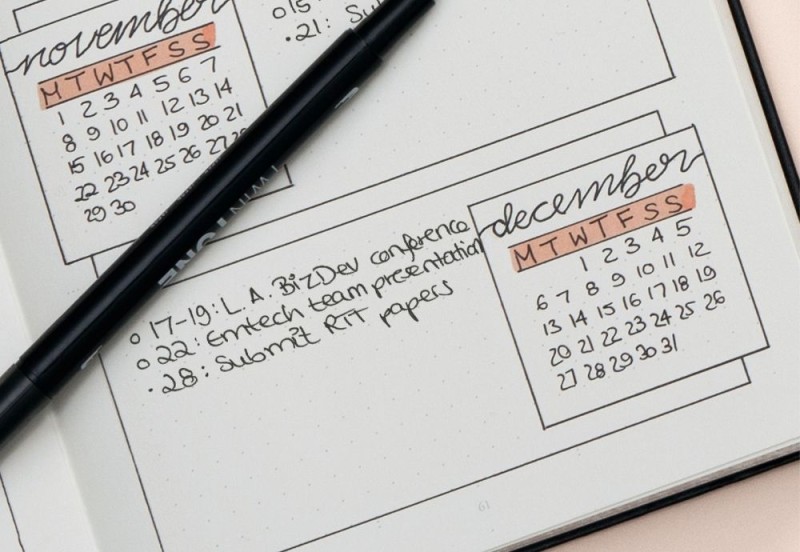 november
M T W T F S S
1 2 3 4 5 6 7
8 9 10 11 12 13 14
15 16 17 18 19 20 21
22 23 24 25 26 27
29 30
•21:
december
M T W T F S S
1 2 3 4 5
6 7 8 9 10 11 12
13 14 15 16 17 18 19
20 21 22 23 24 25 26
27 28 29 30 31
o 17-19: L.A. BizDev conference
o 22: Emtech team presentation
• 28: Submit RIT papers
61